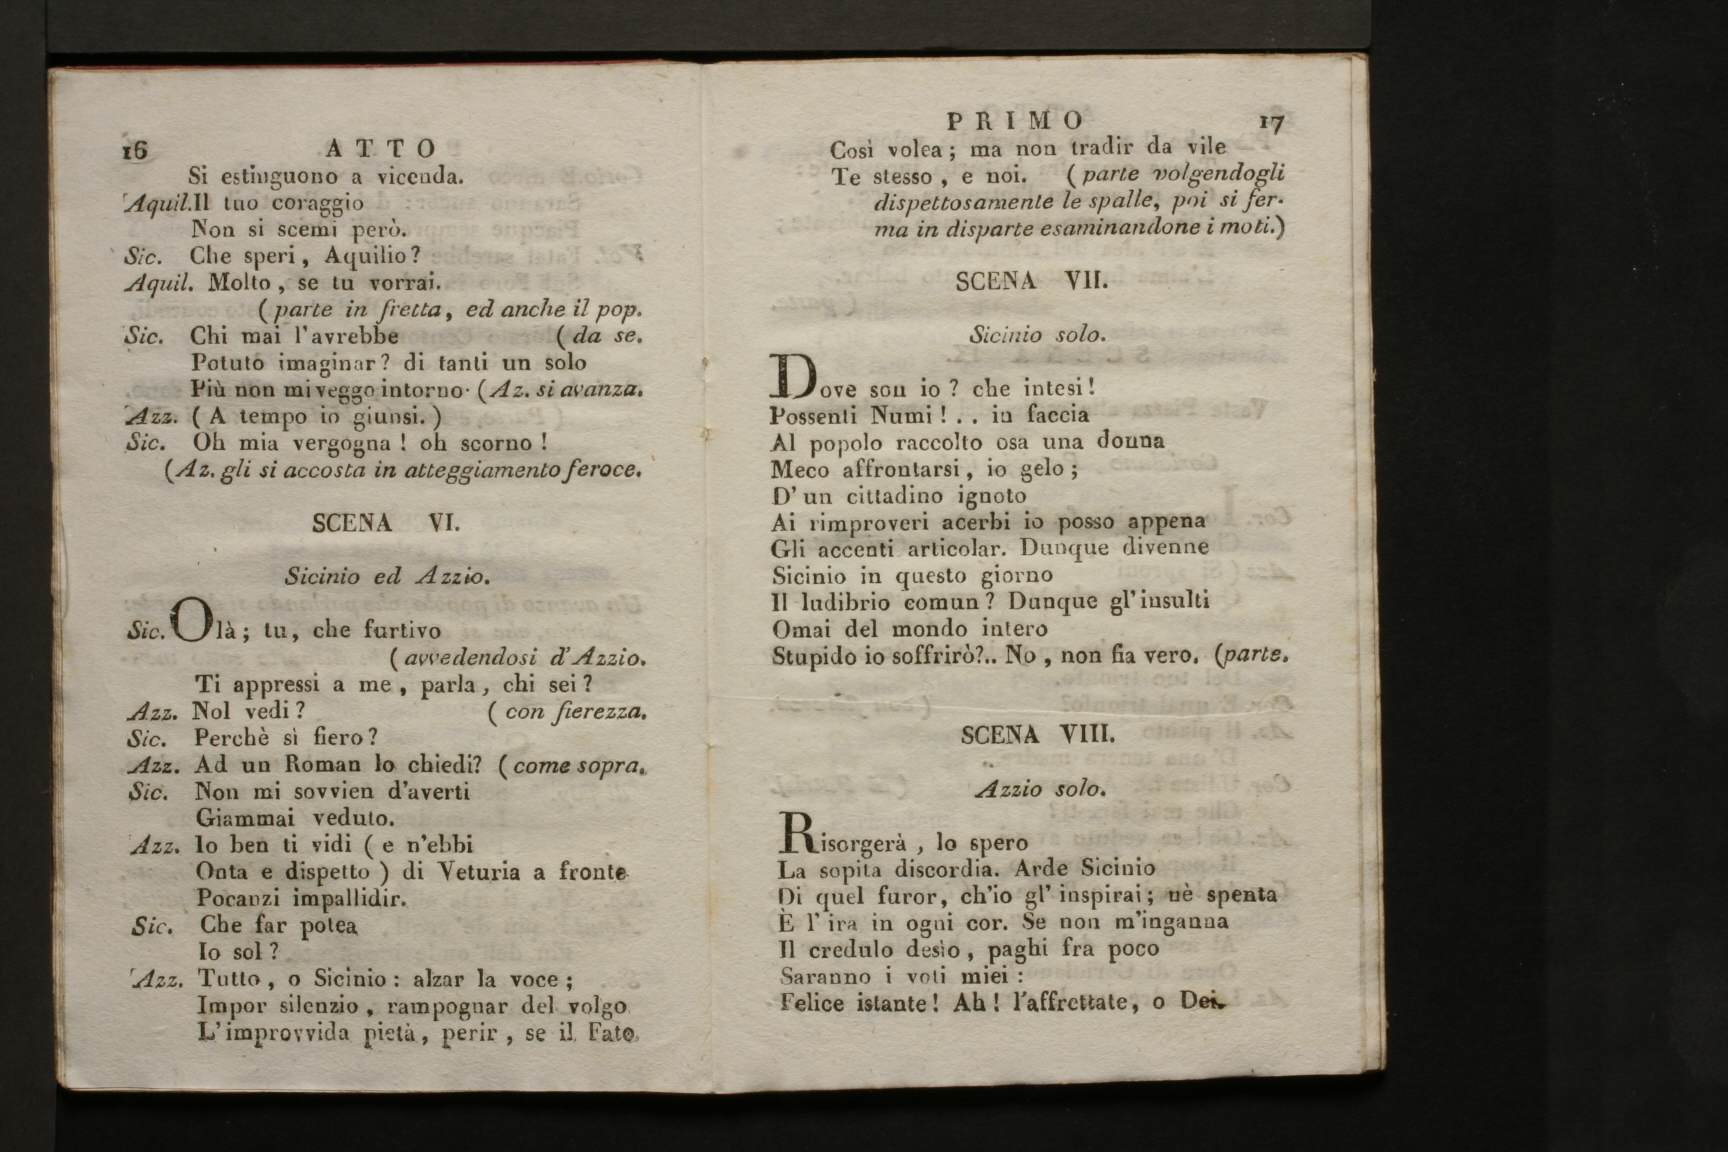 16 ATTO
Si estinguono a vicenda.
Aquil. Il tuo coraggio
Non si scemi però.
Sic. Che speri, Aquilio?
Aquil. Molto, se tu vorrai.
(parte in fretta, ed anche il pop.
Sic. Chi mai l'avrebbe (da se.
Potuto imaginar? di tanti un solo
Più non mi veggo intorno. (Az. si avanza.
Azz. (A tempo io giunsi.)
Sic. Oh mia vergogna! oh scorno!
(Az. gli si accosta in atteggiamento feroce.
SCENA VI.
Sicinio ed Azzio.
Sic. Olà; tu, che furtivo
(avvedendosi d'Azzio.
Ti appressi a me, parla, chi sei?
Azz. Nol vedi? (con fierezza.
Sic. Perchè sì fiero?
Azz. Ad un Roman lo chiedi? (come sopra.
Sic. Non mi sovvien d'averti
Giammai veduto.
Azz. Io ben ti vidi (e n'ebbi
Onta e dispetto) di Veturia a fronte
Pocanzi impallidir.
Sic. Che far potea
Io sol?
Azz. Tutto, o Sicinio: alzar la voce;
Impor silenzio, rampognar del volgo
L'improvvida pietà, perir, se il Fato
PRIMO 17
Così volea; ma non tradir da vile
Te stesso, e noi. (parte volgendogli
dispettosamente le spalle, poi si fer-
ma in disparte esaminandone i moti.)
SCENA VII.
Sicinio solo.
Dove son io? che intesi!
Possenti Numi!.. in faccia
Al popolo raccolto osa una donna
Meco affrontarsi, io gelo;
D'un cittadino ignoto
Ai rimproveri acerbi io posso appena
Gli accenti articolar. Dunque divenne
Sicinio in questo giorno
Il ludibrio comun? Dunque gl'insulti
Omai del mondo intero
Stupido io soffrirò?.. No, non fia vero. (parte.
SCENA VIII.
Azzio solo.
Risorgerà, lo spero
La sopita discordia. Arde Sicinio
Di quel furor, ch'io gl'inspirai; nè spenta
È l'ira in ogni cor. Se non m'inganna
Il credulo desìo, paghi fra poco
Saranno i voti miei:
Felice istante! Ah! l'affrettate, o Dei.